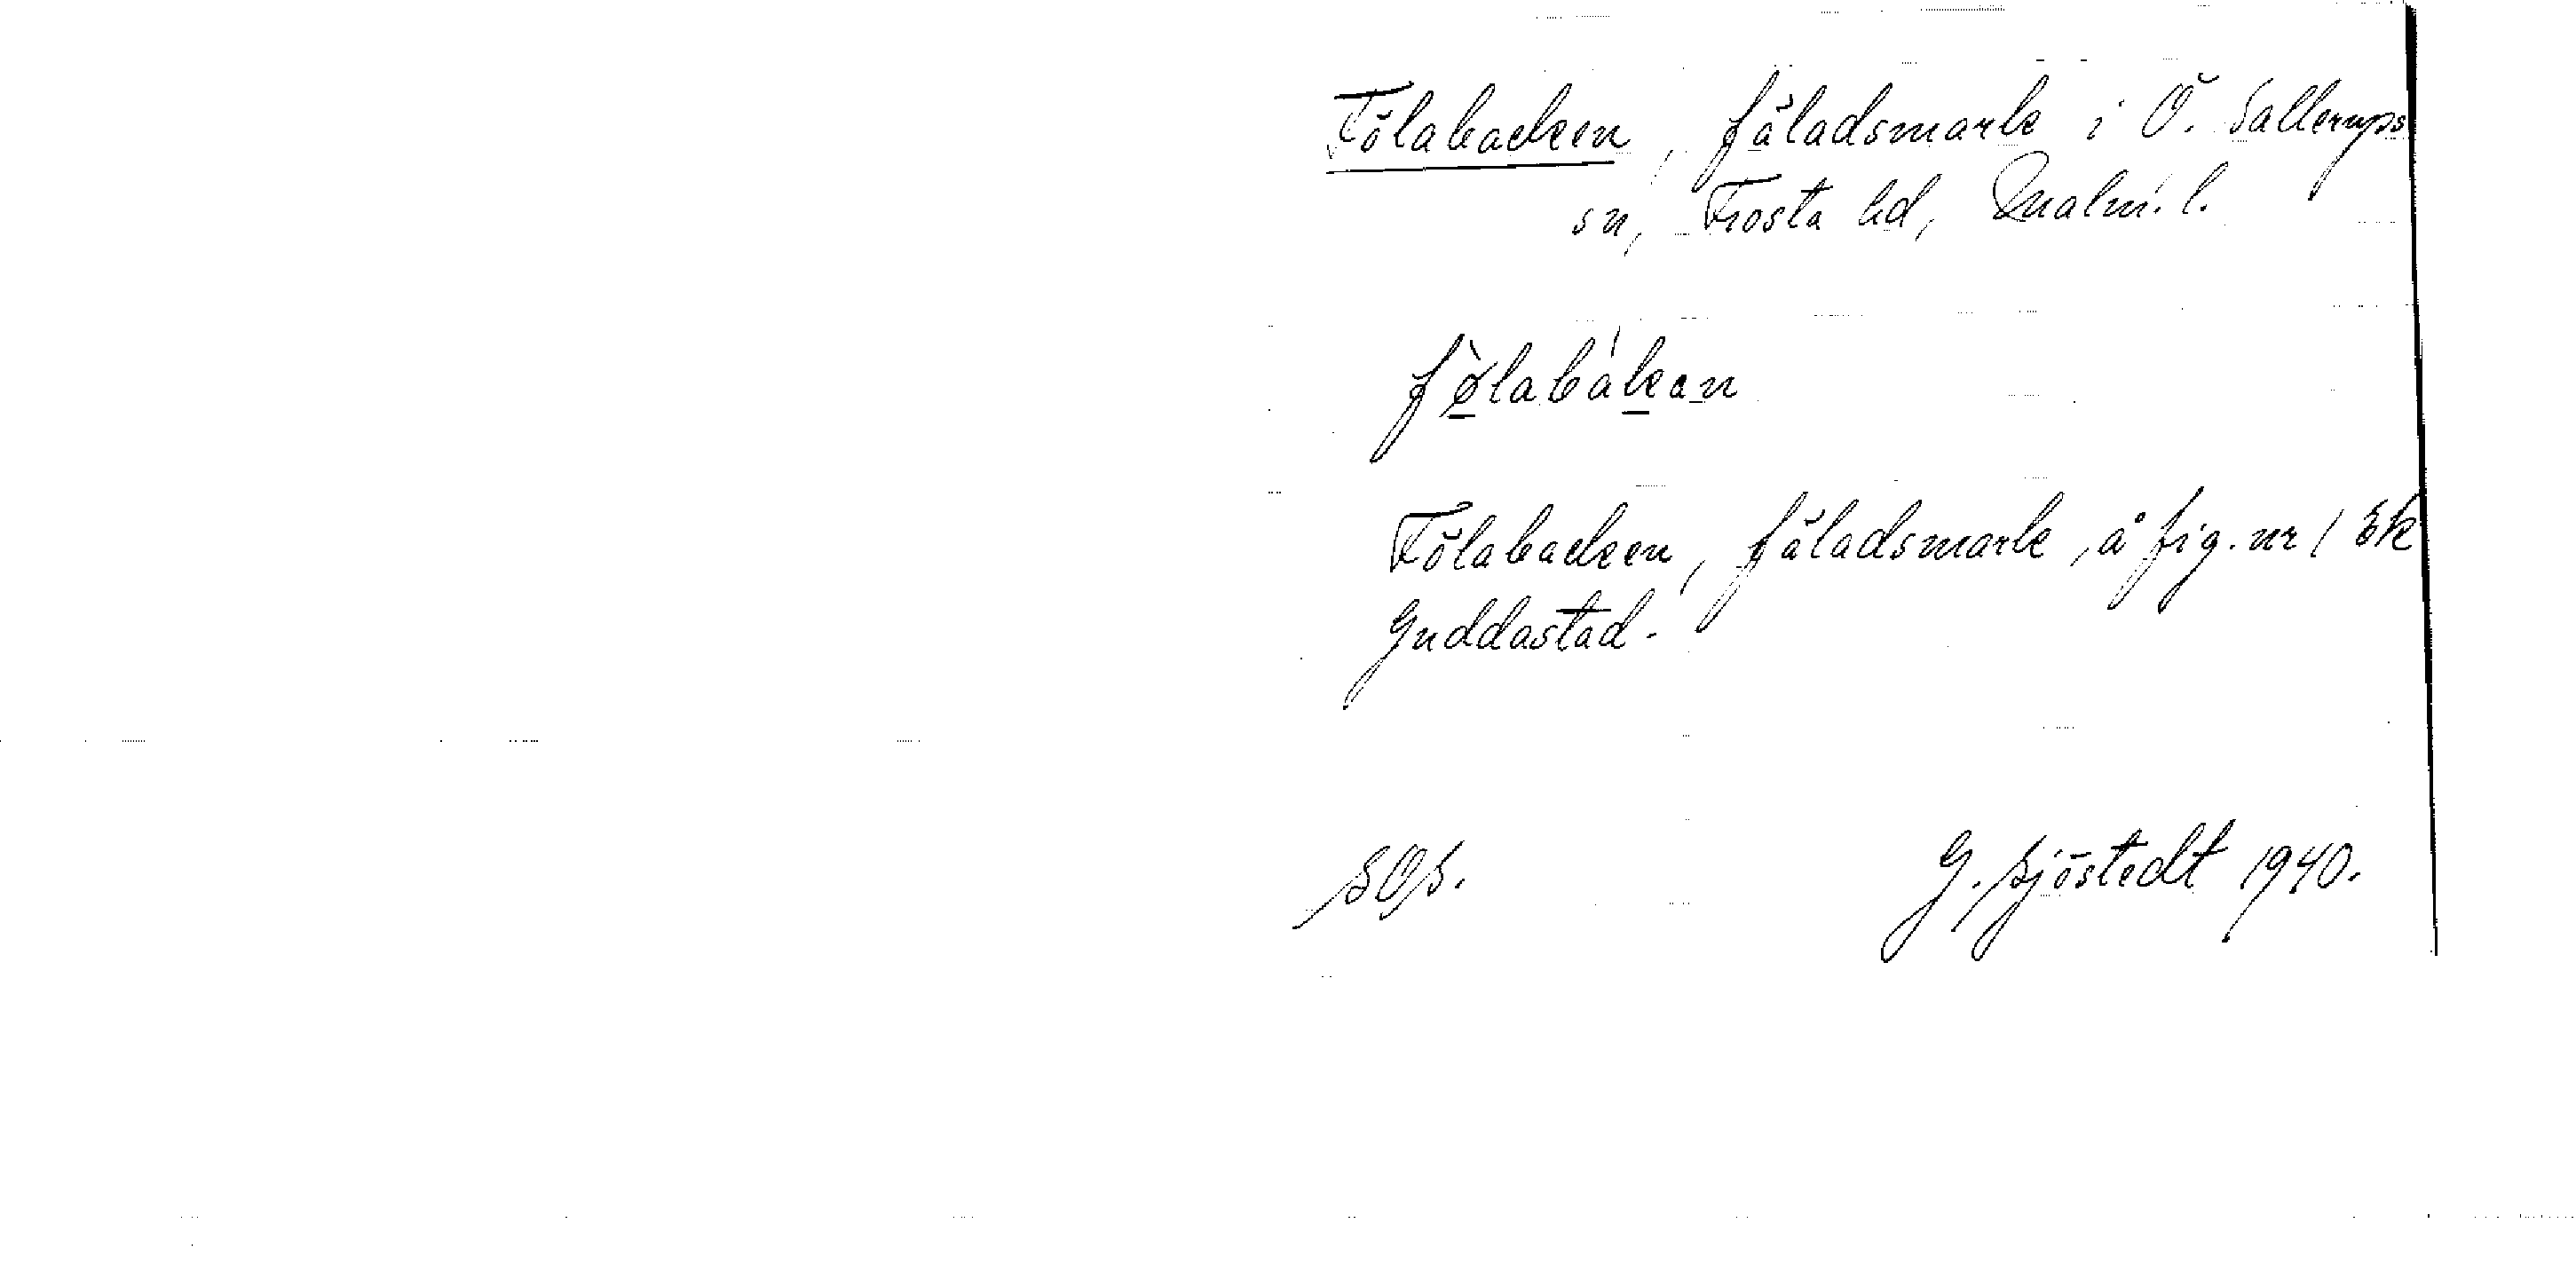 Fölabacken, fäladsmark i Ö. Sallerups
sn, Frosta hd, Malm. l.
fø̀labákan
Fölabacken, fäladsmark, å fig. nr 1 Ek
Guddastad.
SOS.
G. Sjöstedt 1940.